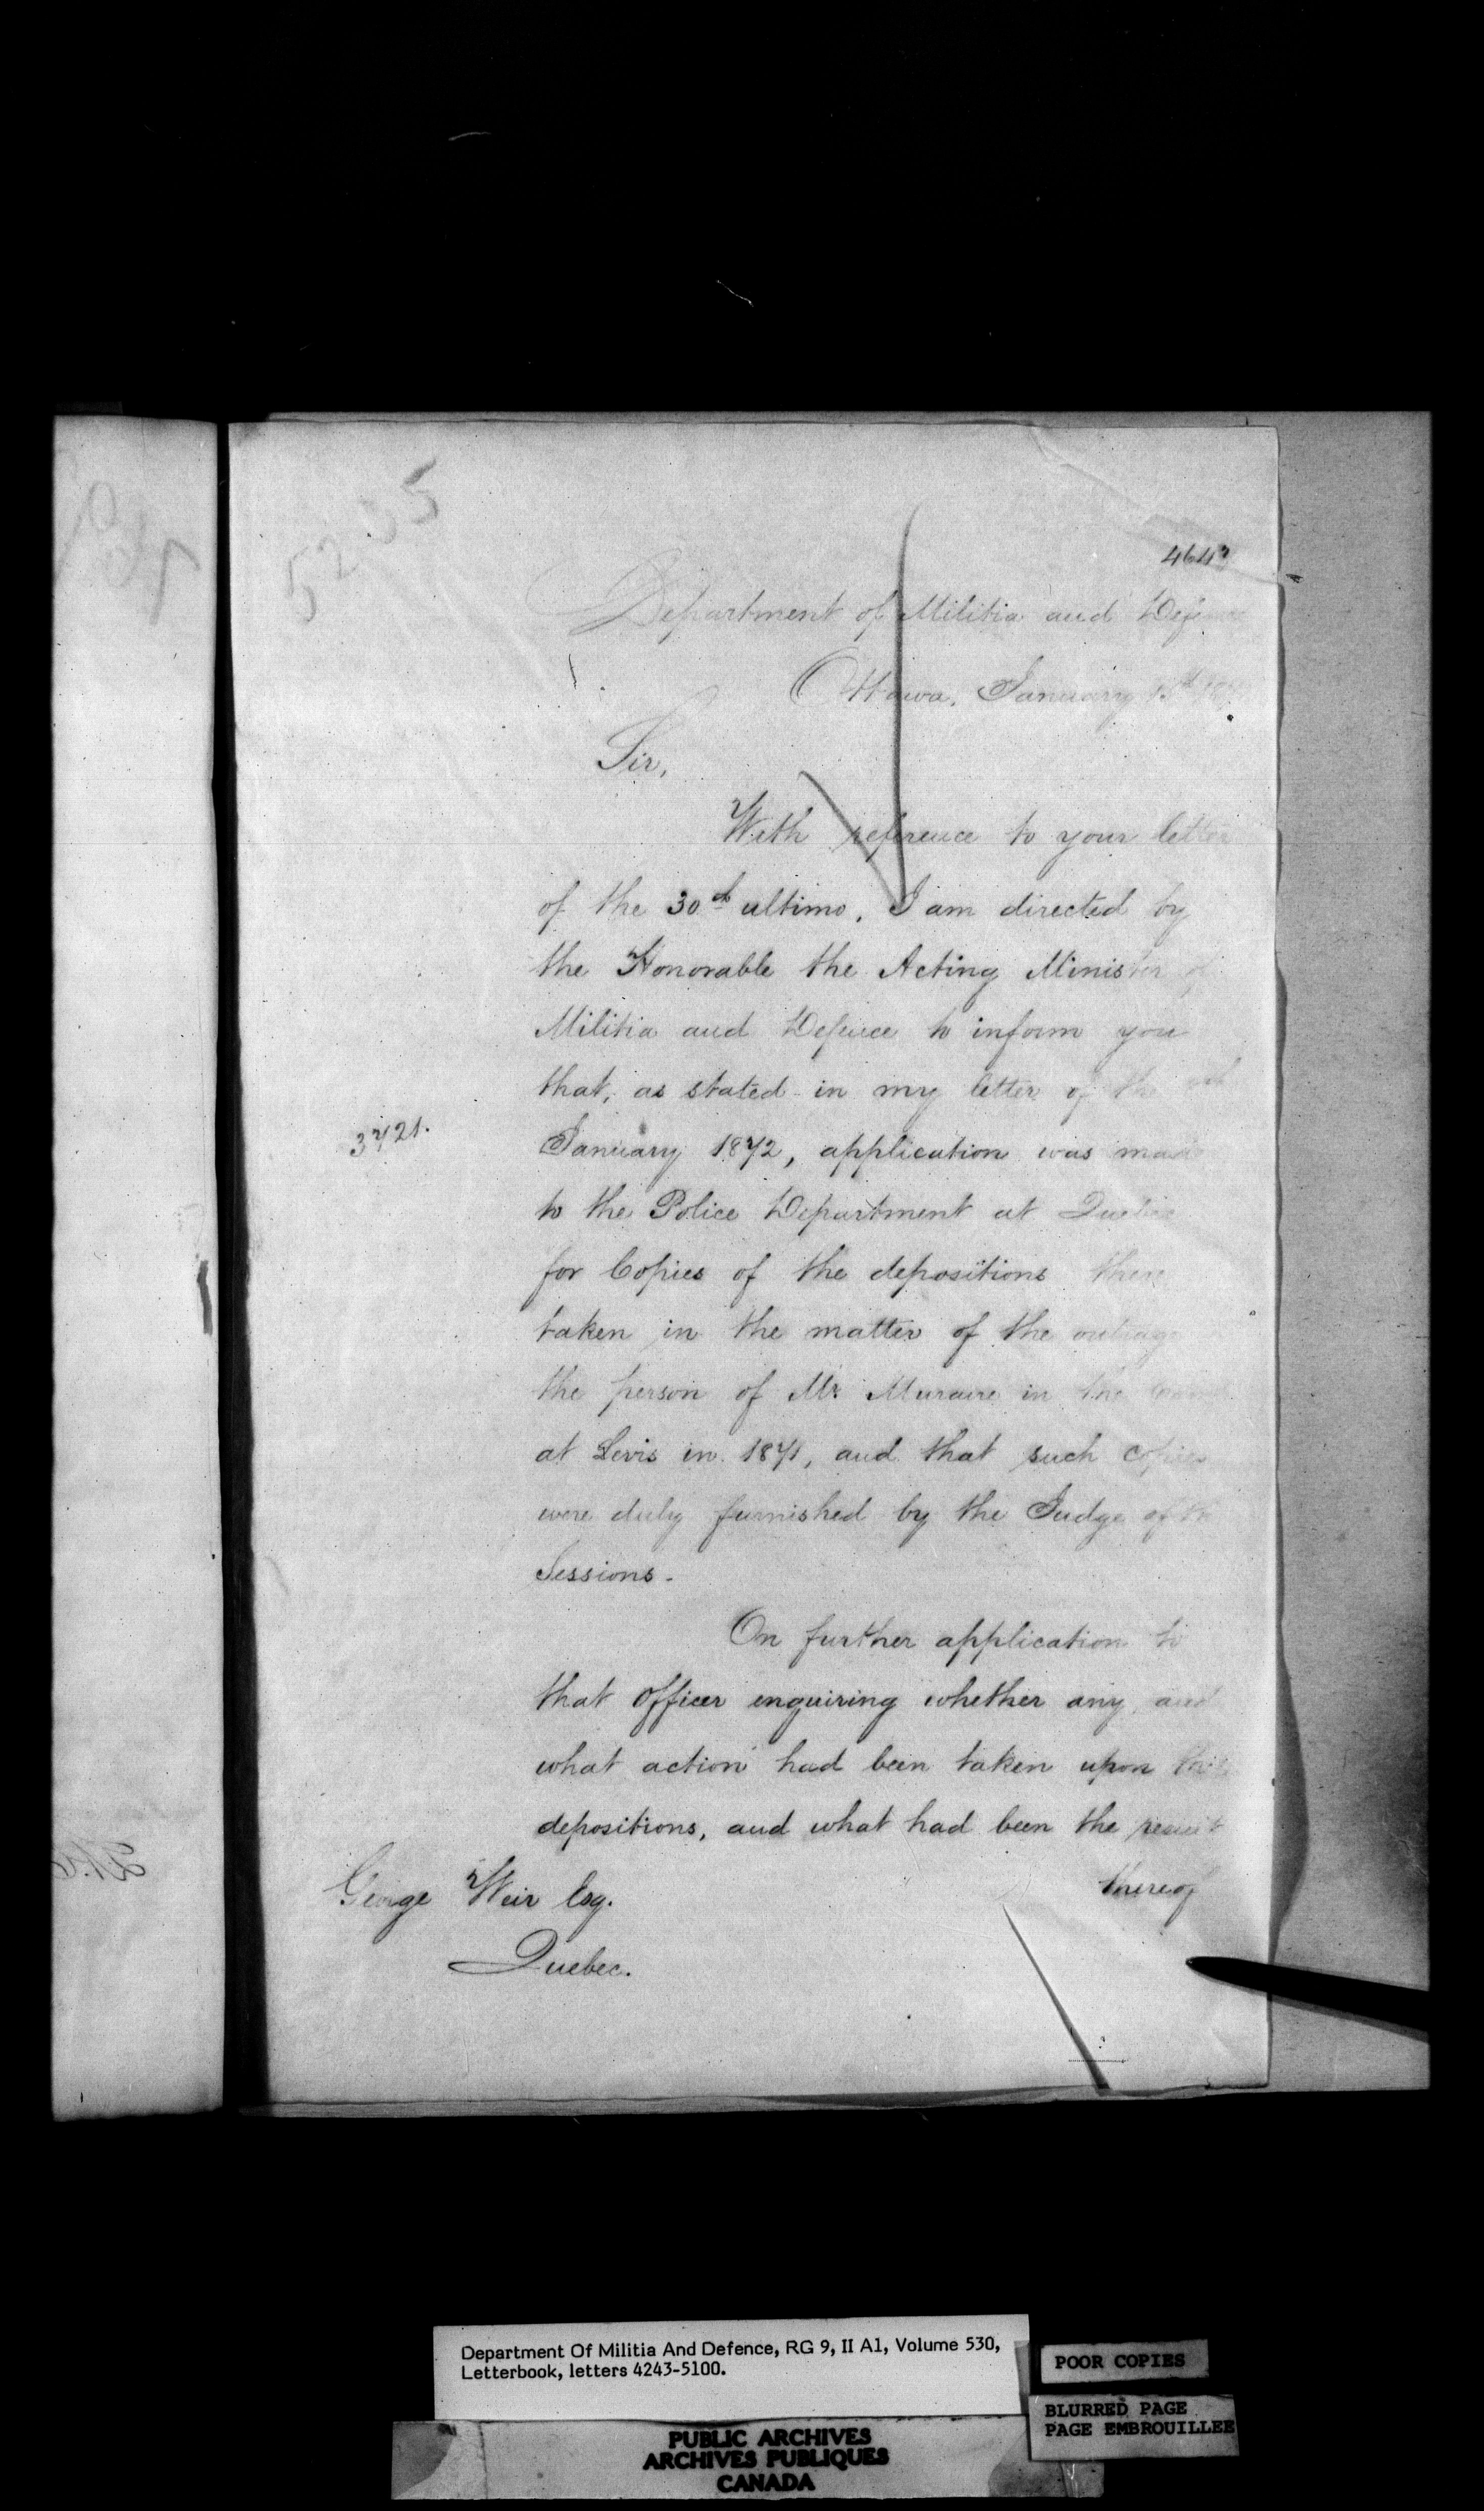 5235
464
Department of Militia and Defence
Ottawa, January
Sir,
With reference to your letter
of the 30th ultimo, I am directed by
the Honorable the Acting Minister of
Militia and Defence to inform you
that, as stated in my letter of the
3721.
January 1872, application was made
to the Police Department at Quebec
for Copies of the depositions there
taken in the matter of the outrage
the person of Mr Muraire in the
at Levis in 1871, and that such copies
were duly furnished by the Judge of the
Sessions.
On further application to
that Officer enquiring whether any and
what action had been taken upon
depositions, and what had been the result
thereof
George Weir Esq.
Quebec.
Department Of Militia And Defence, RG 9, II A1, Volume 530,
Letterbook, letters 4243-5100.
POOR COPIES
BLURRED PAGE
PAGE EMBROUILLEE
PUBLIC ARCHIVES
ARCHIVES PUBLIQUES
CANADA